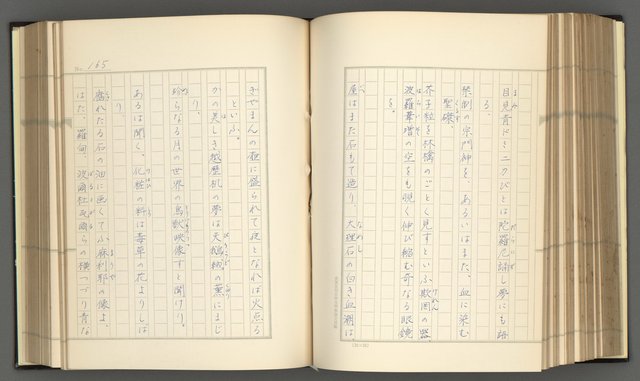 目見青きドミニカびとは陀羅尼誦し夢にも語
る、
禁制の宗門神を、あるいはまた、血に染む
聖磔、
芥子粒を林檎のごとく見すといふ欺罔の器、
波羅葦増の空をも覗く伸び縮む奇なる眼鏡
を。
屋はまた石もて造り、大理石の白き血潮は、
No. 165
ぎやまんの壺に盛られて夜となれば火点る
といふ。
かの美しき越歴機の夢は天鵝絨の薫にまじ
り、
珍らなる月の世界の鳥獣映像すと聞けり。
あるは聞く、化粧の料は毒草の花よりしぼ
り、
腐れたる石の油に画くてふ麻利耶の像よ、
はた、羅甸、波爾杜瓦爾らの横つづり青な